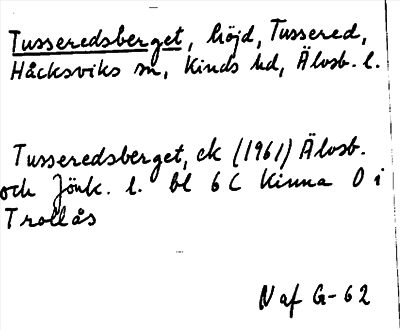 Tusseredsberget, höjd, Tussered,
Håcksviks sn, Kinds hd, Älvsb. l.
Tusseredsberget, ek (1961) Älvsb.
och Jönk. l. bl 6 C Kinna O i
Trollås
N af G-62